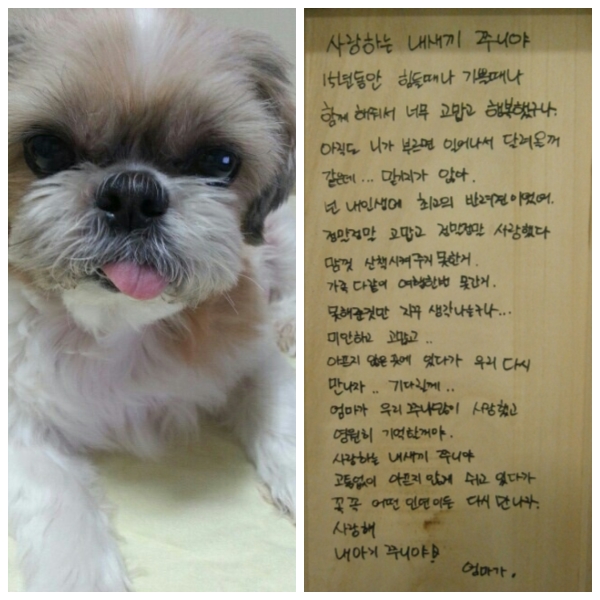 사랑하는 내새끼 쭈니야
15년동안 힘들때나 기쁠때나
함께 해줘서 너무 고맙고 행복했구나.
아직도 니가 부르면 일어나서 달려올꺼
같은데... 믿기지가 않아.
넌 내인생에 최고의 반려견이였어.
정말정말 고맙고 정말정말 사랑했다
맘껏 산책시켜주지 못한거.
가족 다같이 여행한번 못간거.
못해준것만 자꾸 생각나는구나...
미안하고 고맙고..
아프지 않은곳에 있다가 우리 다시
만나자.. 기다릴께..
엄마가 우리 쭈니많이 사랑했고
영원히 기억할꺼야.
사랑하는 내새끼 쭈니야
고통없이 아프지않게 쉬고 있다가
꼭꼭 어떤 인연이든 다시 만나자.
사랑해
내아기 쭈니야!
엄마가.